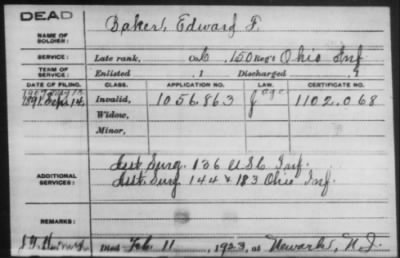 DEAD
NAME OF SOLDIER: Baker, Edward F.
SERVICE: Late rank, Co. C, 150 Reg't Ohio Inf
TERM OF SERVICE: Enlisted , 1 Discharged , 1
DATE OF FILING. CLASS. APPLICATION NO. LAW. CERTIFICATE NO.
1891 Sept 14 Invalid, 1056.863 J 1102.068
Widow,
Minor,
ADDITIONAL SERVICES: Asst Surg. 136 U.S.C. Inf.
Asst Surg 144 & 183 Ohio Inf.
REMARKS:
Died Feb. 11, 1923, at Newark, N.J.